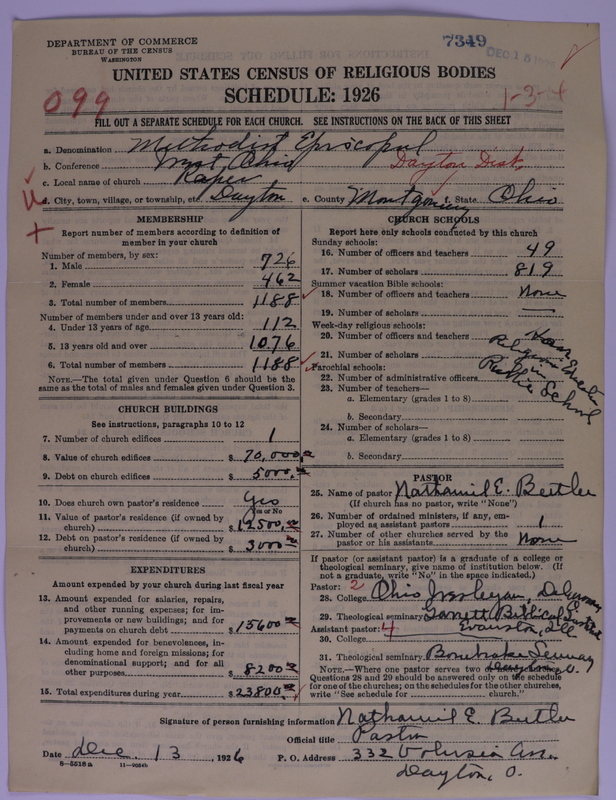 DEPARTMENT OF COMMERCE
BUREAU OF THE CENSUS
WASHINGTON
7349
DEC 18
UNITED STATES CENSUS OF RELIGIOUS BODIES
SCHEDULE: 1926
099
1-3-4
FILL OUT A SEPARATE SCHEDULE FOR EACH CHURCH. SEE INSTRUCTIONS ON THE BACK OF THIS SHEET
a. Denomination Methodist Episcopal
b. Conference West Ohio Dayton Dist.
c. Local name of church Raper
d. City, town, village, or township, etc. Dayton e. County Montgomery f. State Ohio
MEMBERSHIP
Report number of members according to definition of
member in your church
Number of members, by sex:
1. Male 726
2. Female 462
3. Total number of members 1188
Number of members under and over 13 years old:
4. Under 13 years of age 112
5. 13 years old and over 1076
6. Total number of members 1188
NOTE.—The total given under Question 6 should be the
same as the total of males and females given under Question 3.
CHURCH BUILDINGS
See instructions, paragraphs 10 to 12
7. Number of church edifices 1
8. Value of church edifices $ 70,000.
9. Debt on church edifices $ 5000.
10. Does church own pastor's residence Yes
Yes or No
11. Value of pastor's residence (if owned by
church) $ 12500.
12. Debt on pastor's residence (if owned by
church) $ 3000
EXPENDITURES
Amount expended by your church during last fiscal year
13. Amount expended for salaries, repairs,
and other running expenses; for im-
provements or new buildings; and for
payments on church debt $ 15600
14. Amount expended for benevolences, in-
cluding home and foreign missions; for
denominational support; and for all
other purposes $ 8200
15. Total expenditures during year $ 23800.
CHURCH SCHOOLS
Report here only schools conducted by this church
Sunday schools:
16. Number of officers and teachers 49
17. Number of scholars 819
Summer vacation Bible schools:
18. Number of officers and teachers None
19. Number of scholars —
Week-day religious schools:
20. Number of officers and teachers
21. Number of scholars
Parochial schools:
22. Number of administrative officers
23. Number of teachers—
a. Elementary (grades 1 to 8)
b. Secondary
24. Number of scholars—
a. Elementary (grades 1 to 8)
b. Secondary
in
Public School
PASTOR
25. Name of pastor Nathaniel E. Butler
(If church has no pastor, write "None")
26. Number of ordained ministers, if any, em-
ployed as assistant pastors 1
27. Number of other churches served by the
pastor or his assistants None
If pastor (or assistant pastor) is a graduate of a college or
theological seminary, give name of institution below. (If
not a graduate, write "No" in the space indicated.)
Pastor: 2
28. College Ohio Wesleyan, Delaware, O.
29. Theological seminary Garrett Biblical Institute
Evanston, Ill
Assistant pastor: 4
30. College
31. Theological seminary Bonebrake Seminary
Dayton, O.
NOTE.—Where one pastor serves two or more churches,
Questions 28 and 29 should be answered only on the schedule
for one of the churches; on the schedules for the other churches,
write "See schedule for church."
Signature of person furnishing information Nathaniel E. Butler
Official title Pastor
Date Dec. 13, 1926 P. O. Address 332 Volusia Ave.
Dayton, O.
8—5518a 11—9054b